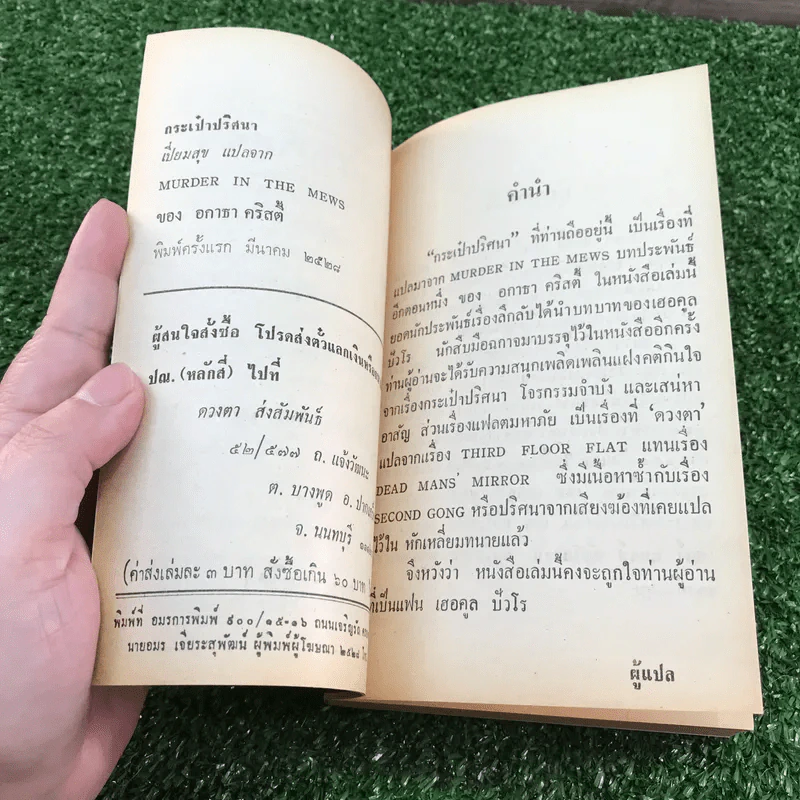 กระเป๋าปริศนา
เปี่ยมสุข แปลจาก
MURDER IN THE MEWS
ของ อกาธา คริสตี้
พิมพ์ครั้งแรก มีนาคม ๒๕๒๘
ผู้สนใจสั่งซื้อ โปรดส่งตั๋วแลกเงินหรือ
ปณ. (หลักสี่) ไปที่
ดวงตา ส่งสัมพันธ์
๕๒/๕๗๗ ถ. แจ้งวัฒนะ
ต. บางพูด อ. ปาก
จ. นนทบุรี
(ค่าส่งเล่มละ ๓ บาท สั่งซื้อเกิน ๖๐ บาท
พิมพ์ที่ อมรการพิมพ์ ๙๐๐/๑๕-๑๖ ถนนเจริญรัถ
นายอมร เจียระสุพัฒน์ ผู้พิมพ์ผู้โฆษณา ๒๕๒๘
คำนำ
“กระเป๋าปริศนา” ที่ท่านถืออยู่นี้ เป็นเรื่องที่
แปลมาจาก MURDER IN THE MEWS บทประพันธ์
อีกตอนหนึ่ง ของ อกาธา คริสตี้ ในหนังสือเล่มนี้
ยอดนักประพันธ์เรื่องลึกลับได้นำบทบาทของเฮอคูล
ปัวโร นักสืบมือฉกาจมาบรรจุไว้ในหนังสืออีกครั้ง
ท่านผู้อ่านจะได้รับความสนุกเพลิดเพลินแฝงคติกินใจ
จากเรื่องกระเป๋าปริศนา โจรกรรมจำบัง และเสน่หา
อาสัญ ส่วนเรื่องแฟลตมหาภัย เป็นเรื่องที่ ‘ดวงตา’
แปลจากเรื่อง THIRD FLOOR FLAT แทนเรื่อง
DEAD MANS' MIRROR ซึ่งมีเนื้อหาซ้ำกับเรื่อง
SECOND GONG หรือปริศนาจากเสียงฆ้องที่เคยแปล
ไว้ใน หักเหลี่ยมทนายแล้ว
จึงหวังว่า หนังสือเล่มนี้คงจะถูกใจท่านผู้อ่าน
ที่เป็นแฟน เฮอคูล ปัวโร
ผู้แปล